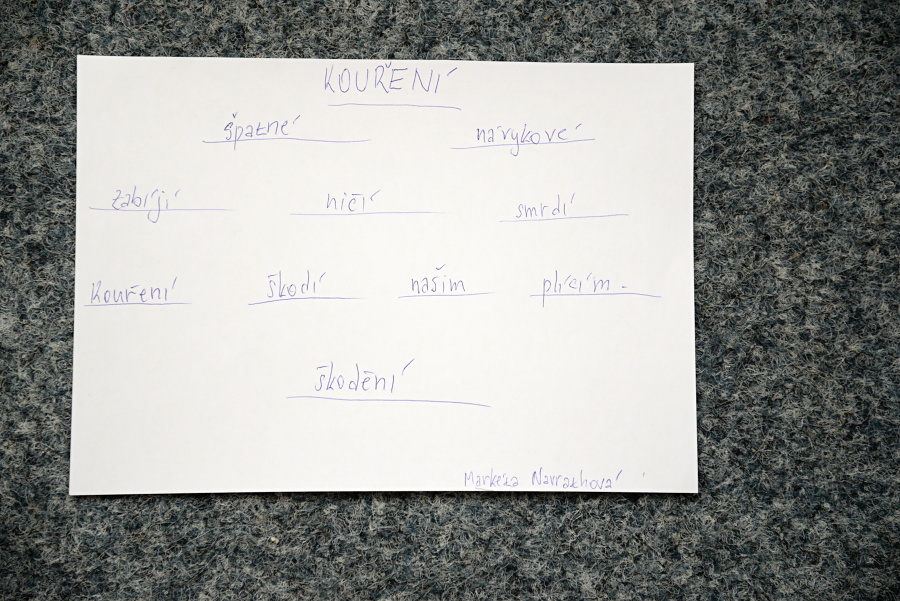 KOUŘENÍ
špatné návykové
zabíjí ničí smrdí
Kouření škodí našim plícím.
škodění
Markéta Navrathová